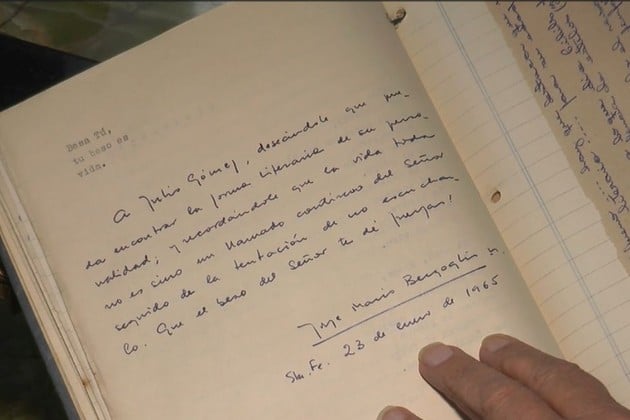 Besa Tú,
tu beso es
vida.
A Julio Gómez, deseándole que pue-
da encontrar la forma literaria de su perso-
nalidad; y recordándole que la vida toda
no es sino un llamado continuo del Señor
seguido de la tentación de no escuchar-
lo. Que el beso del Señor te dé fuerzas!
Jorge Mario Bergoglio
Sta. Fe, 23 de enero de 1965